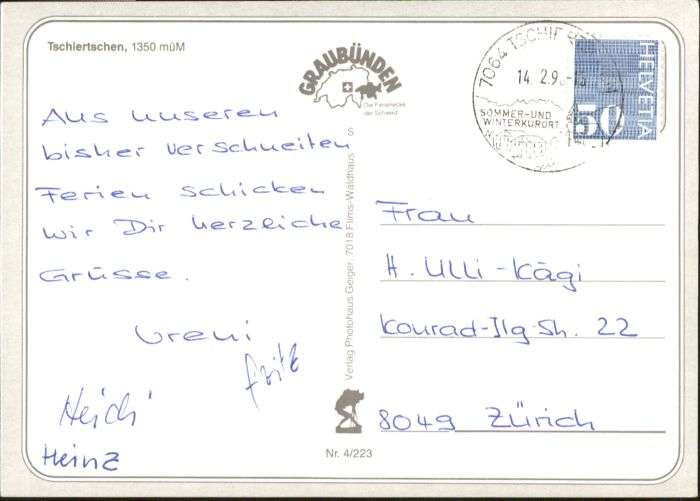 Tschiertschen, 1350 müM
GRAUBÜNDEN
Die Ferienecke
der Schweiz
7064 TSCHIE
14. 2. 9
SOMMER-UND
WINTERKURORT
HELVETIA
50
Aus unseren
bisher verschneiten
Ferien schicken
wir Dir herzliche
Grüsse.
Vreni
Fritz
Heidi
Heinz
Verlag Photohaus Geiger, 7018 Flims-Waldhaus
Frau
H. Ulli-Kägi
Konrad-Ilg-Str. 22
8049 Zürich
Nr. 4/223